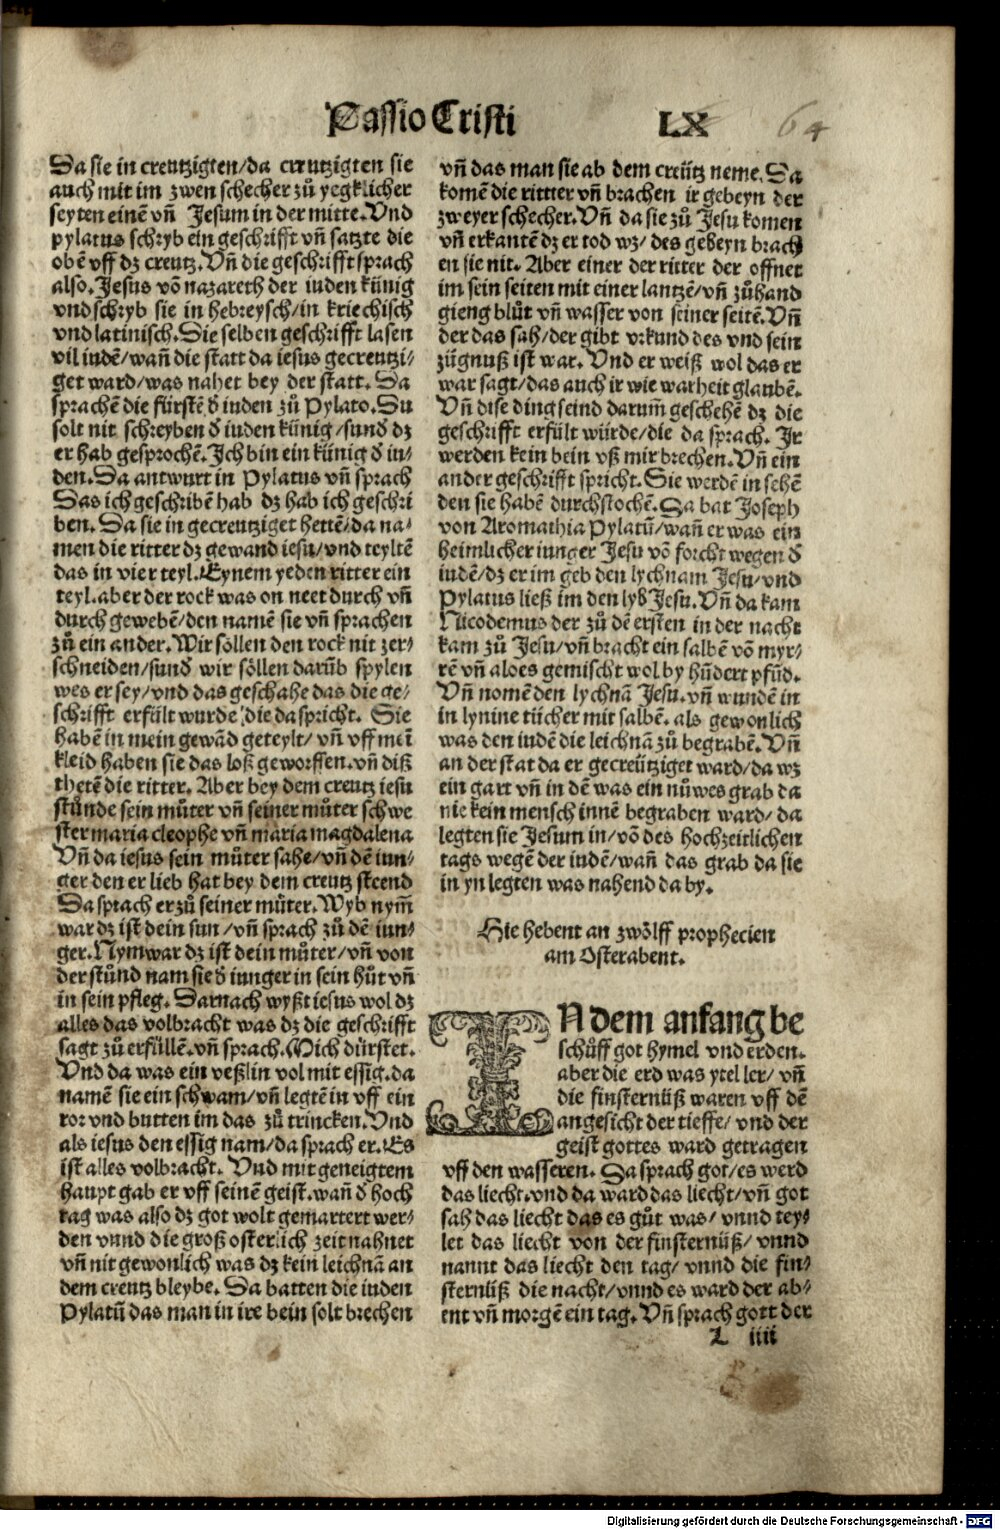 Passio Cristi LX 64
Da sie in creutzigten/da creutzigten sie
auch mit im zwen schecher zů yegklicher
seyten einē vñ Jesum in der mitte. Vnd
pylatus schryb ein geschrifft vñ satzte die
obē vff dz creutz. Vñ die geschrifft sprach
also. Jesus vō nazareth der iuden künig
vnd schryb sie in hebreysch/in kriechisch
vnd latinisch. Die selben geschrifft lasen
vil iudē/wañ die statt da iesus gecreutzi⸗
get ward/was nahet bey der statt. Da
sprachē die fürstē đ iuden zů Pylato. Du
solt nit schreyben đ iuden künig/sunđ dz
er hab gesprochē. Ich bin ein künig đ iu⸗
den. Da antwurt in Pylatus vñ sprach
Das ich geschribē hab dz hab ich geschri
ben. Da sie in gecreutziget hettē/da na⸗
men die ritter dz gewand iesu/vnd teyltē
das in vier teyl. Eynem yeden ritter ein
teyl. aber der rock was on neet durch vñ
durch gewebē/den namē sie vñ sprachen
zů ein ander. Wir söllen den rock nit zer⸗
schneiden/sunđ wir söllen darūb spylen
wes er sey/vnd das geschahe das die ge⸗
schrifft erfült wurde/die da spricht. Sie
habē in mein gewād geteylt/vñ vff meī
kleid haben sie das loß geworffen. vñ diß
thetē die ritter. Aber bey dem creutz iesu
stůnde sein můter vñ seiner můter schwe
ster maria cleophe vñ maria magdalena
Vñ da iesus sein můter sahe/vñ dē iun⸗
ger den er lieb hat bey dem creutz steend
Da sprach er zů seiner můter. Wyb nym̄
war dz ist dein sun/vñ sprach zů dē iun⸗
ger. Nym war dz ist dein můter/vñ von
der stůnd nam sie đ iunger in sein hůt vñ
in sein pfleg. Darnach wyßt iesus wol dz
alles das volbracht was dz die geschrifft
sagt zů erfüllē. vñ sprach. Mich dürstet.
Vnd da was ein veßlin vol mit essig. da
namē sie ein schwam/vñ legtē in vff ein
ror vnd butten im das zů trincken. Vnd
als iesus den essig nam/da sprach er. Es
ist alles volbracht. Vnd mit geneigtem
haupt gab er vff seinē geist. wañ đ hoch
tag was also dz got wolt gemartert wer⸗
den vnnd die groß osterlich zeit nahnet
vñ nit gewonlich was dz kein leichnā an
dem creutz bleybe. Da batten die iuden
Pylatū das man in ire bein solt brechen
vñ das man sie ab dem creütz neme. Da
komē die rittter vñ brachen ir gebeyn der
zweyer schecher. Vñ da sie zů Jesu komen
vñ erkantē dz er tod wz/des gebeyn brach
en sie nit. Aber einer der ritter der offnet
im sein seiten mit einer lantzē/vñ zůhand
gieng blůt vñ wasser von seiner seitē. Vñ
der das sah/der gibt vrkund des vnd sein
zügnuß ist war. Vnd er weiß wol das er
war sagt/das auch ir wie warheit glaubē.
Vñ dise ding seind darum̄ geschehē dz die
geschrifft erfült würde/die da sprach. Ir
werden kein bein vß mir brechen. Vñ ein
ander geschrifft spricht. Sie werdē in sehē
den sie habē durchstochē. Da bat Joseph
von Aromathia Pylatū/wañ er was ein
heimlicher iunger Jesu vō forcht wegen đ
iudē/dz er im geb den lychnam Jesu/vnd
Pylatus ließ im den lyb Jesu. Vñ da kam
Nicodemus der zů dē ersten in der nacht
kam zů Jesu/vñ bracht ein salbē vō myr⸗
rē vñ aloes gemischt wol by hūdert pfūd.
Vñ nomē den lychnā Jesu. vñ wundē in
in lynine tücher mit salbē. als gewonlich
was den iudē die leichnā zů begrabē. Vñ
an der stat da er gecreütziget ward/da wz
ein gart vñ in dē was ein nüwes grab da
nie kein mensch innē begraben ward/da
legten sie Jesum in/vō des hochzeitlichen
tags wegē der iudē/wañ das grab da sie
in yn legten was nahend da by.
Hie hebent an zwölff prophecien
am Osterabent.
IN dem anfang be
schůff got hymel vnd erden.
aber die erd was ytel ler/vñ
die finsternüß waren vff dē
angesicht der tieffe/vnd der
geist gottes ward getragen
vff den wasseren. Da sprach got/es werd
das liecht. vnd da ward das liecht/vñ got
sah das liecht das es gůt was/vnnd tey⸗
let das liecht von der finsternüß/vnnd
nannt das liecht den tag/vnnd die fin⸗
sternüß die nacht/vnnd es ward der ab⸗
ent vñ morgē ein tag. Vñ sprach gott der
L iiii
Digitalisierung gefördert durch die Deutsche Forschungsgemeinschaft - DFG